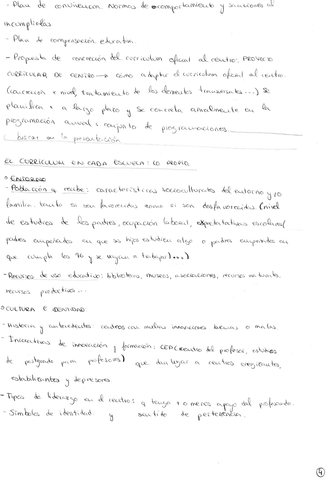 - Plan de convivencia. Normas de comportamiento y sanciones al
incumplirlas
- Plan de compensación educativa.
- Propuesta de concreción del curriculum oficial al centro: PROYECTO
CURRICULAR DE CENTRO → cómo adaptar el curriculum oficial al centro
(concreción x nivel, tratamiento de los elementos transversales...) Se
planifica + a largo plazo y se concreta anualmente en la
programación anual + conjunto de programaciones
( buscar en la presentación
EL CURRÍCULUM EN CADA ESCUELA: LO PROPIO
○ ENTORNO
- Población q recibe: características socioculturales del entorno y/o
familia, tanto si son favorecidas como si son desfavorecidas (nivel
de estudios de los padres, ocupación laboral, expectativas escolares/
padres empeñados en que sus hijos estudien algo o padres empeñados en
que cumpla los 16 y se vayan a trabajar)...)
- Recursos de uso educativo: bibliotecas, museos, asociaciones, recursos
recursos productivos...
○ CULTURA E IDENTIDAD
- Historia y antecedentes: centros con muchas innovaciones buenas o malas.
- Iniciativas de innovación y formación: CEP (centro del profesor, estudios
de postgrado para profesores) que dan lugar a centros
estabilizantes y depresores
- Tipos de liderazgo en el centro: q tenga + o menos apoyo del profesorado.
- Símbolos de identidad y sentido de pertenencia.
4